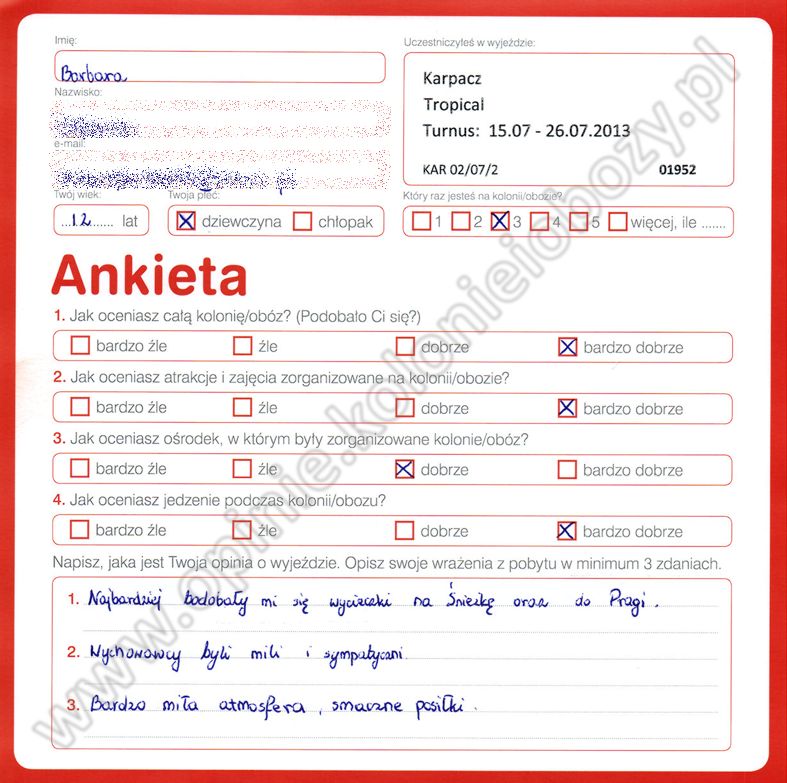 Imię:
Uczestniczyłeś w wyjeździe:
Barbara
Karpacz
Tropical
Turnus: 15.07 - 26.07.2013
KAR 02/07/2 01952
Nazwisko:
e-mail:
Twój wiek:
Twoja płeć:
Który raz jesteś na kolonii/obozie?
...12...... lat
dziewczyna chłopak
1 2 3 4 5 więcej, ile .......
Ankieta
1. Jak oceniasz całą kolonię/obóz? (Podobało Ci się?)
bardzo źle źle dobrze bardzo dobrze
2. Jak oceniasz atrakcje i zajęcia zorganizowane na kolonii/obozie?
bardzo źle źle dobrze bardzo dobrze
3. Jak oceniasz ośrodek, w którym były zorganizowane kolonie/obóz?
bardzo źle źle dobrze bardzo dobrze
4. Jak oceniasz jedzenie podczas kolonii/obozu?
bardzo źle źle dobrze bardzo dobrze
Napisz, jaka jest Twoja opinia o wyjeździe. Opisz swoje wrażenia z pobytu w minimum 3 zdaniach.
1. Najbardziej bodobały mi się wycieczki na Śnieżkę oraz do Pragi.
2. Wychowawcy byli mili i sympatyczni.
3. Bardzo miła atmosfera, smaczne posiłki.
www.opinie.kolonieiobozy.pl